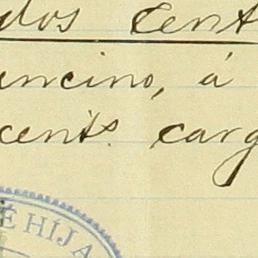 dos cent
uncino, á
cents. carg
É HIJA